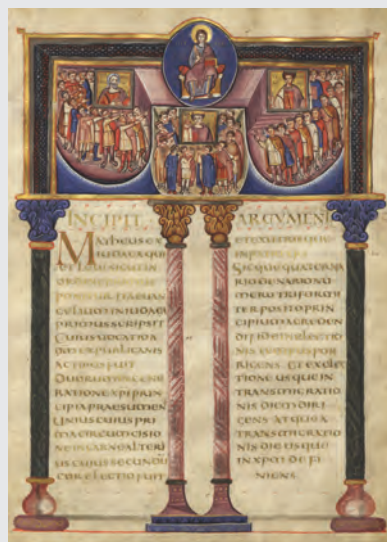 INCIPIT
MATHEUS EX
IUDAEA QUI
ET LEUI SICUT IN
ORDINE PRIMUS
PONITUR ITA EUAN
GELIUM IN IUDAEA
PRIMUS SCRIPSIT
CUIUS UOCATIO A
DO EX PUBLICANIS
ACTIBUS FUIT
DUORUM IN GENE
RATIONE XPI PRIN
CIPIA PRAESUMEN
UNIUS CUIUS PRI
MA CIRCUMCISIO
NE IN CARNE ALTERI
US CUIUS SECUNDU
COR ELECTIO FUIT
ARGUMENT
ET EX UTRISQUE
IN PATRIB XPS
SICQUE QUATERNA
RIO DENARIO NU
MERO TRIFORMI
TER POSITO PRIN
CIPIUM A CREDEN
DI FIDE IN ELECTIO
NIS TEMPUS POR
RIGENS ET EX ELEC
TIONE USQUE IN
TRANSMIGRATIO
NIS DIEM DIRI
GENS ATQUE A
TRANSMIGRATIO
NIS DIE USQUE
IN XPM DEFI
NIENS